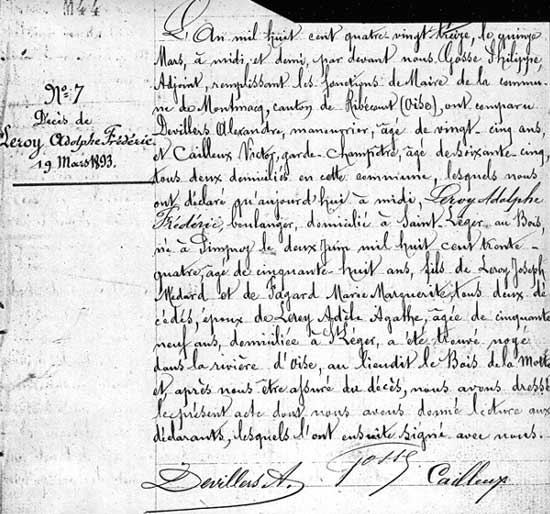 M44
No. 7
Décès de
Leroy Adolphe Frédéric
19 Mars 1893.
L'An mil huit cent quatre-vingt-treize, le quinze
Mars, à midi et demi, par devant nous Gosse Philippe,
Adjoint, remplissant les fonctions de Maire de la commu-
ne de Montmacq, canton de Ribécourt (Oise), ont comparu
Devillers Alexandre, manouvrier, âgé de vingt-cinq ans,
et Cailleux Victor, garde-champêtre, âgé de soixante-cinq,
tous deux domiciliés en cette commune, lesquels nous
ont déclaré qu'aujourd'hui à midi, Leroy Adolphe
Frédéric, boulanger, domicilié à Saint-Léger au Bois,
né à Pimprez le deux Juin mil huit cent trente-
quatre, âgé de cinquante-huit ans, fils de Leroy Joseph
Médard et de Fagard Marie Marguerite, tous deux dé-
cédés, époux de Leroy Adèle Agathe, âgée de cinquante
neuf ans, domiciliée à St Léger, a été trouvé noyé
dans la rivière d'Oise, au lieudit le Bois de la Motte
et après nous être assuré du décès, nous avons dressé
le présent acte dont nous avons donné lecture aux
déclarants, lesquels l'ont ensuite signé avec nous.
Devillers A. Gosse Cailleux